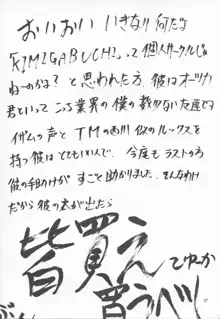 おいおい いきなり何だよ
「KIMIGABUCHI」って個人サークルじゃ
ねーのかよ? と思われた方。彼はオーツカ
君といって こっち業界の僕の数少ない友達です
イサムっ声と TMの西川 似のルックスを
持つ彼は とてもいい人で. 今度も ラストの方
彼の手助けが すごく助かりました. そんなわけ
だから 彼の本が出たら
皆買え
てゆーか
買うべし